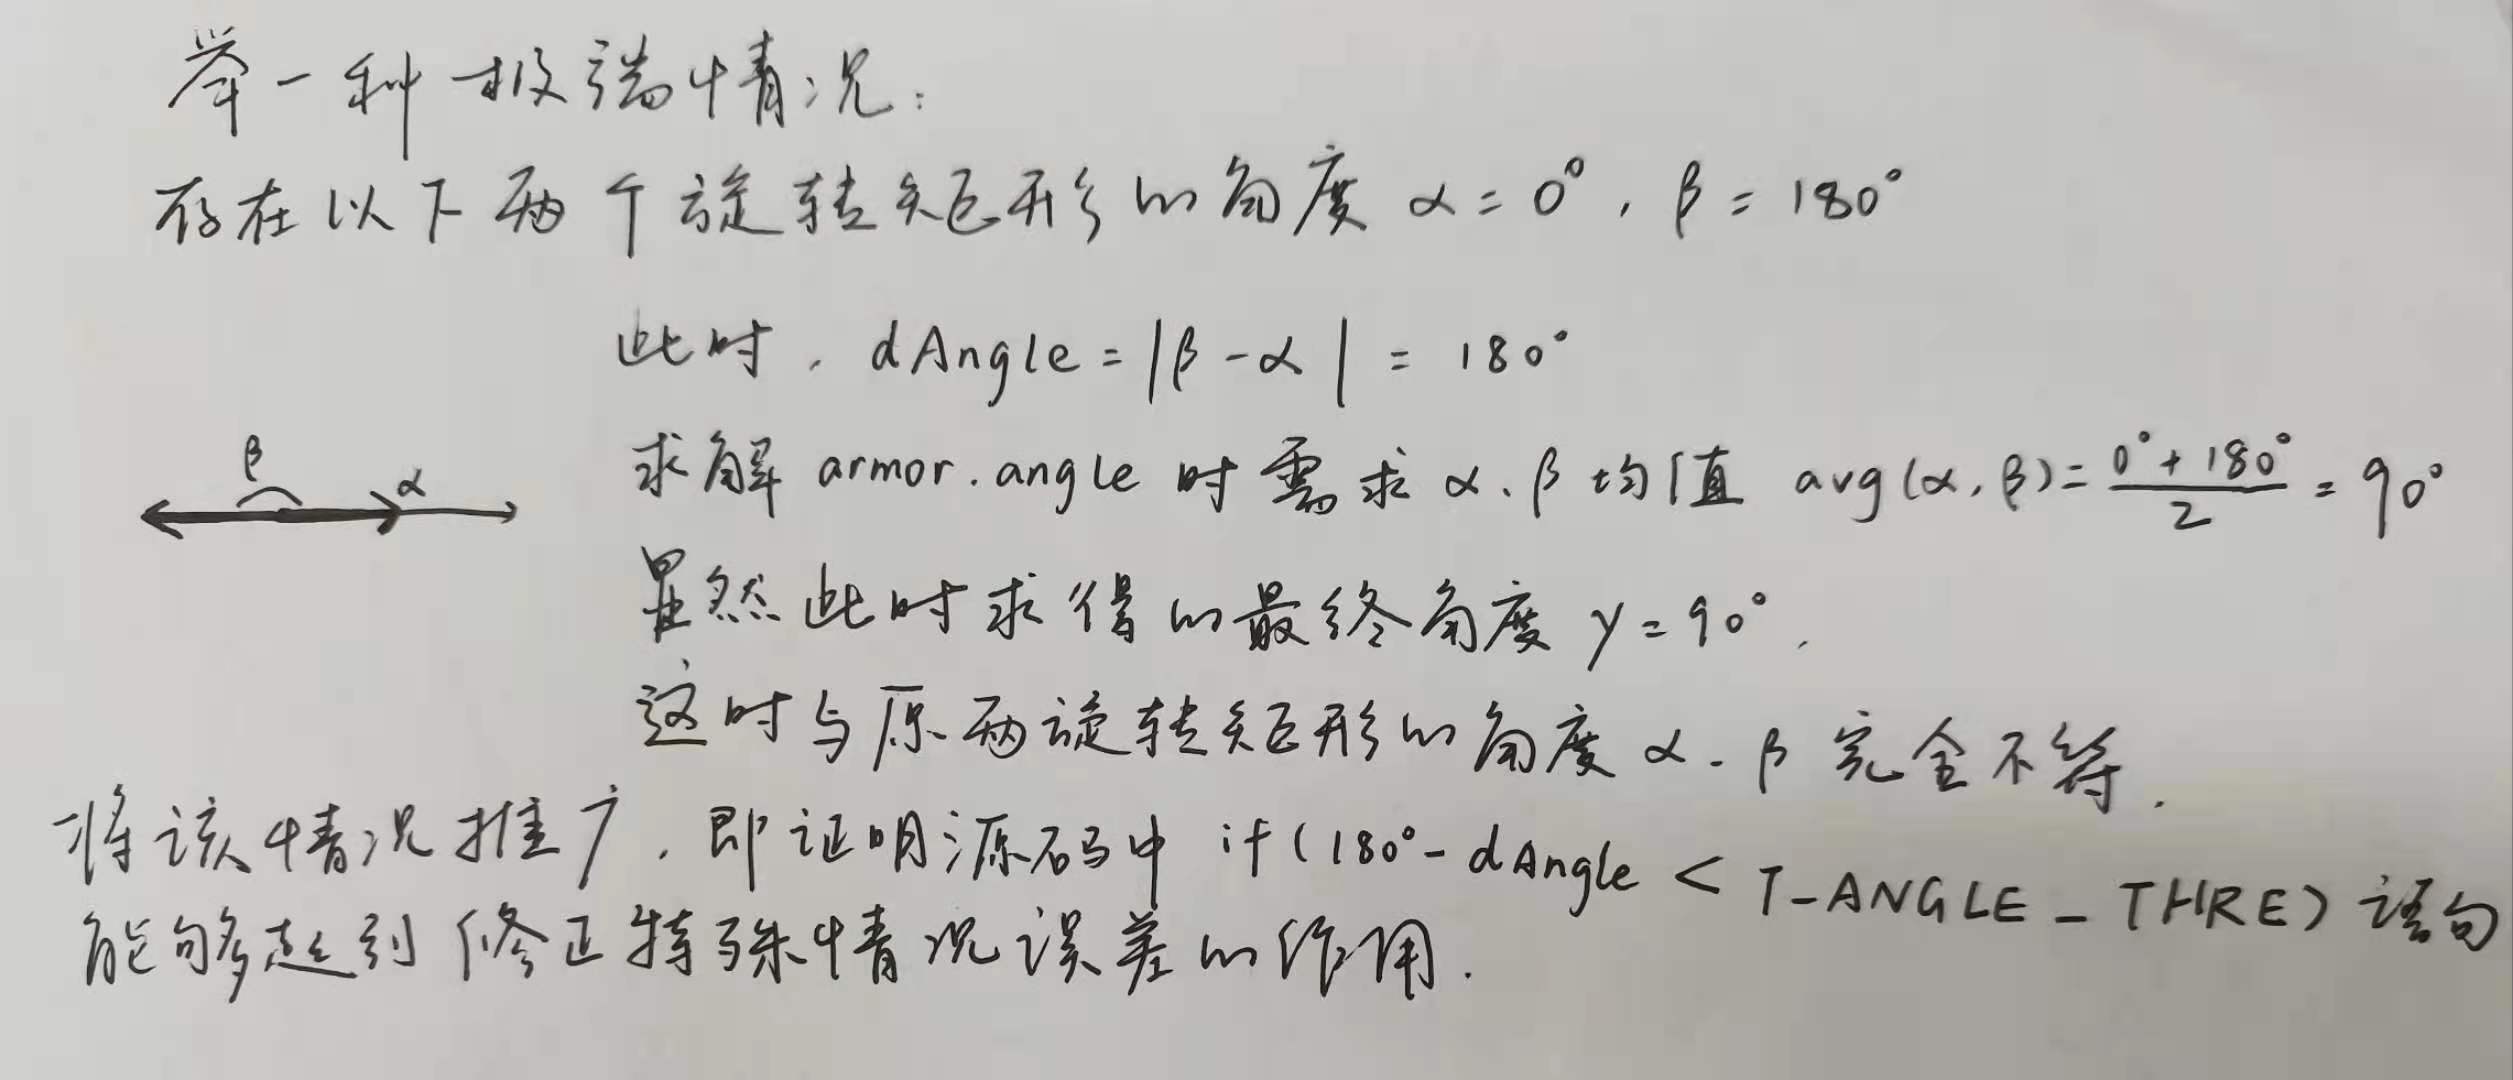 举一种极端情况:
存在以下两个旋转矩形的角度 α = 0°, β = 180°
此时, dAngle = |β - α| = 180°
β
α
求解 armor.angle 时需求 α、β 均值 avg(α, β) = (0° + 180°)/2 = 90°
显然此时求得的最终角度 y = 90°,
这时与原两旋转矩形的角度 α、β 完全不符.
将该情况推广, 即证明源码中 if (180° - dAngle < T-ANGLE_THRE) 语句
能够起到修正特殊情况误差的作用.